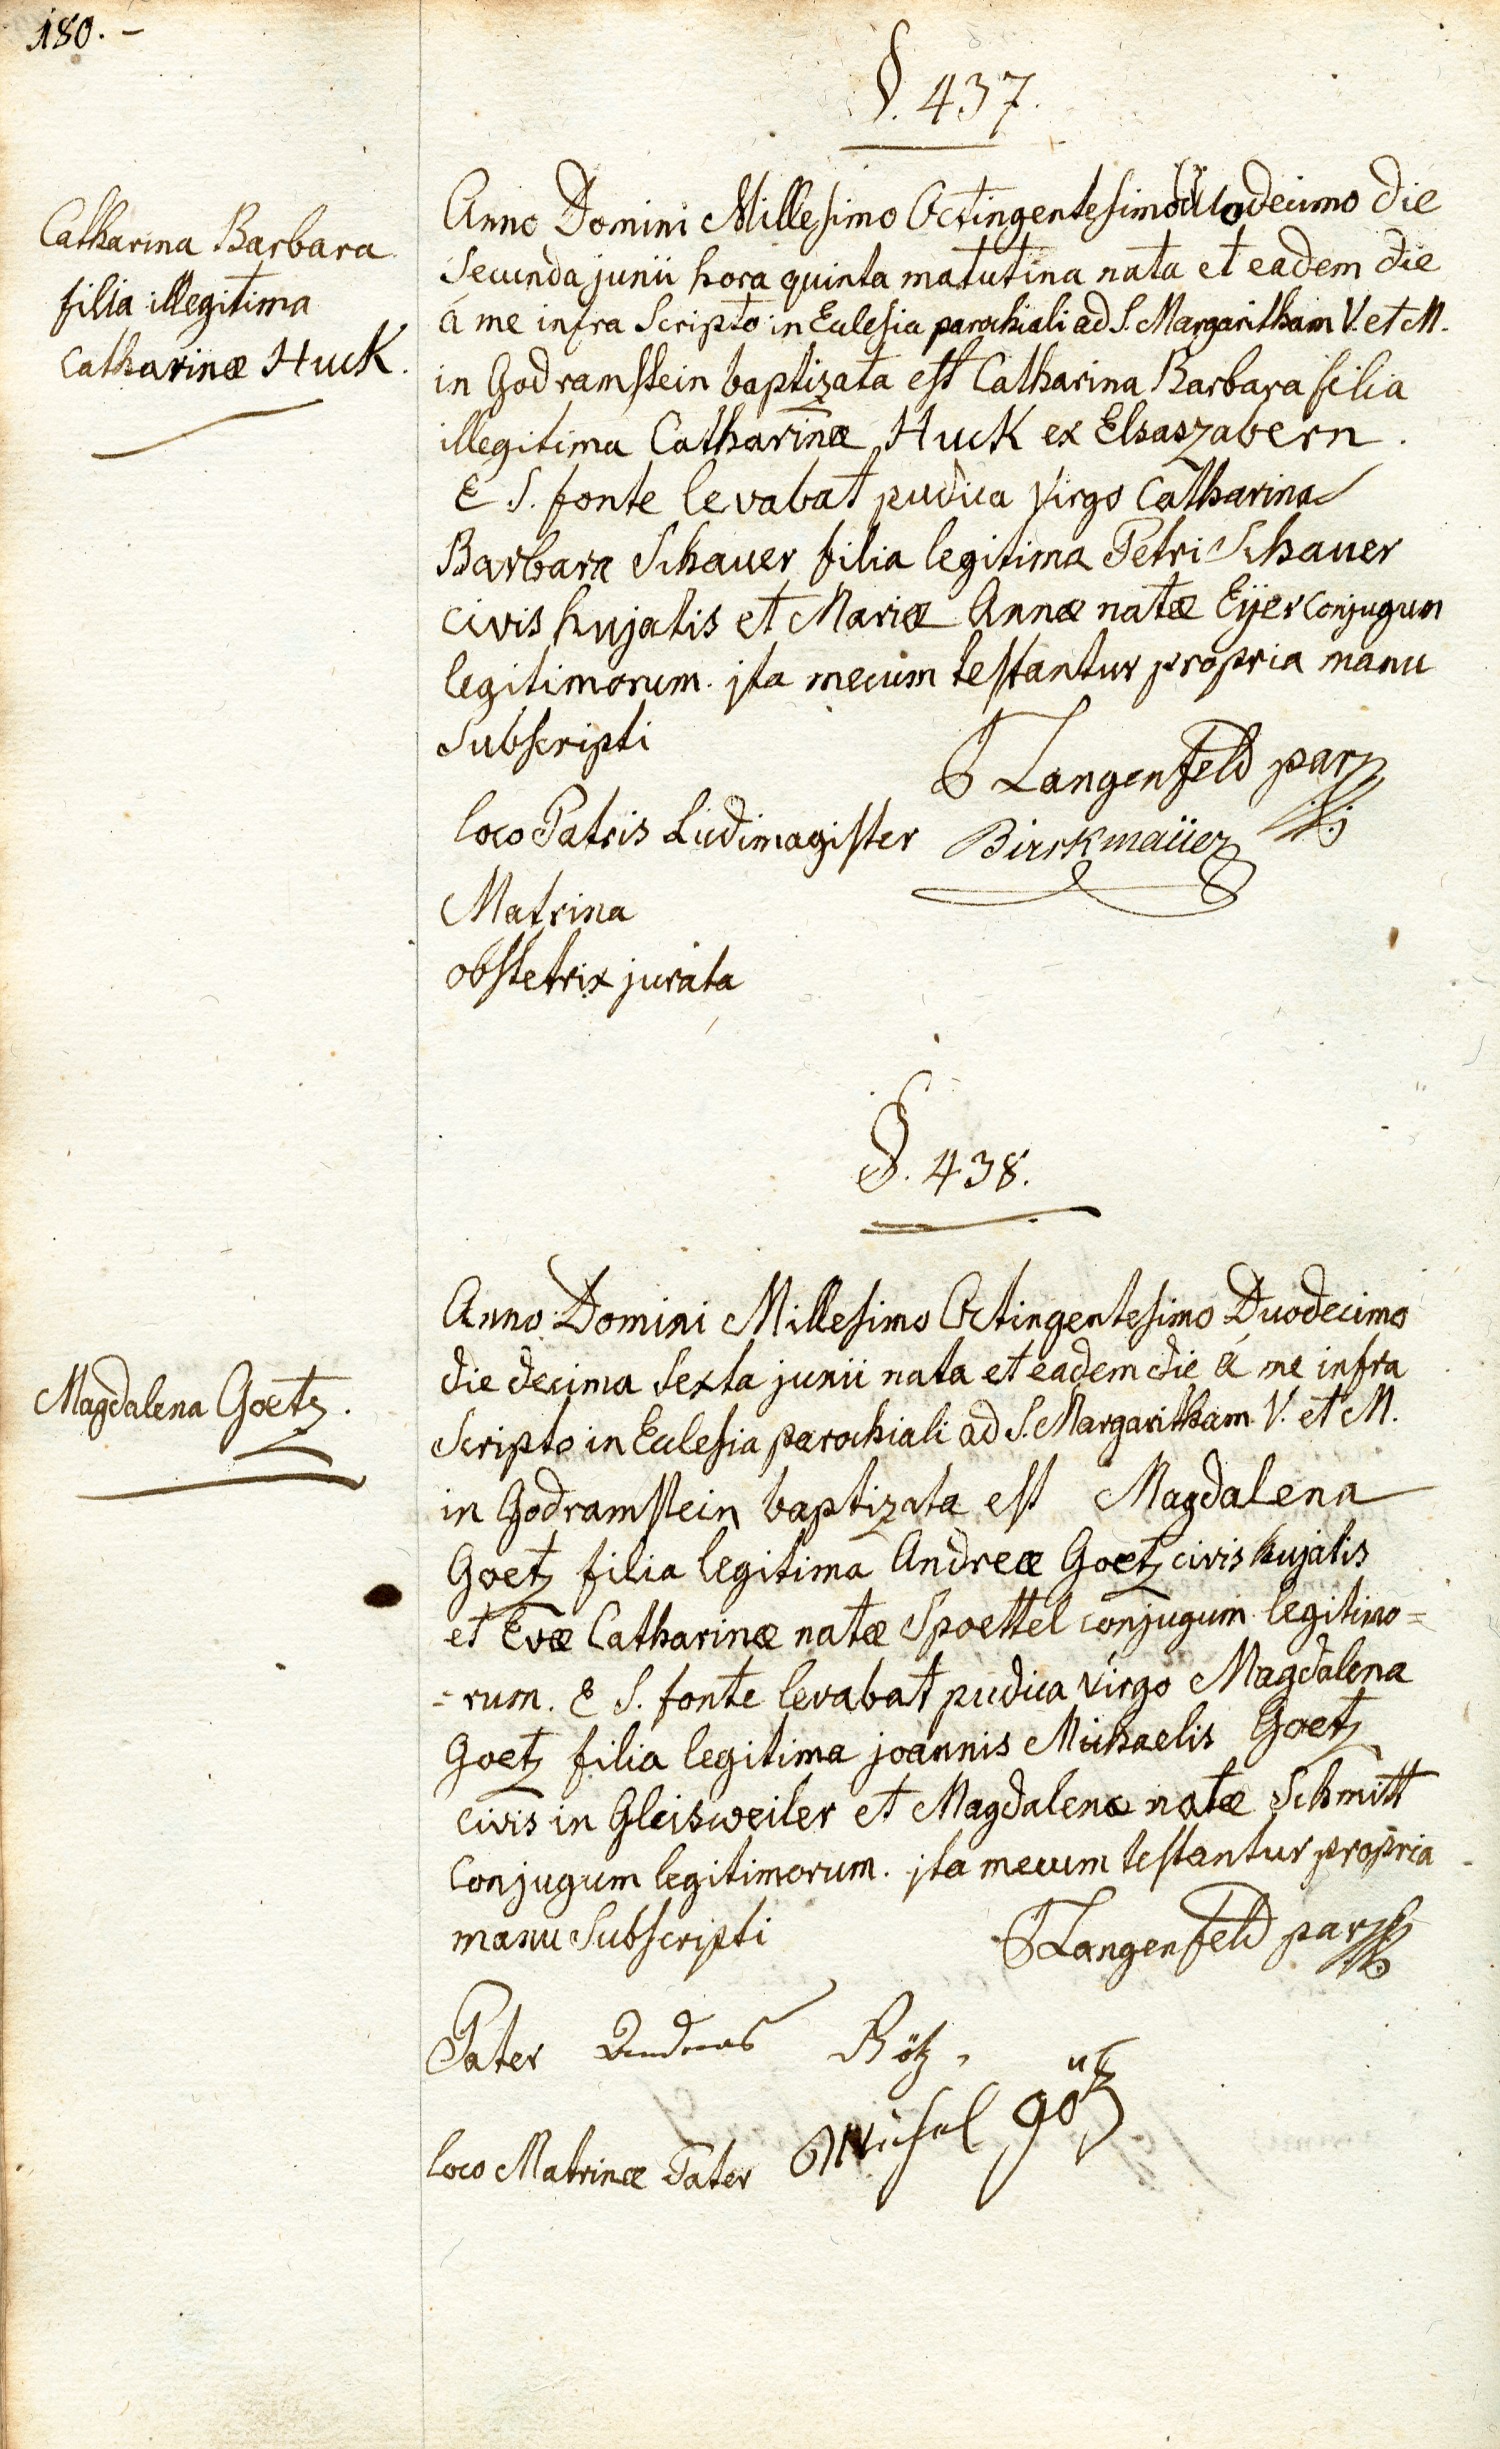 180. –
§. 437.
Catharina Barbara
filia illegitima
Catharinæ Huck.
Anno Domini Millesimo Octingentesimo duodecimo die
secunda junii hora quinta matutina nata et eadem die
á me infra Scripto in Ecclesia parochiali ad S. Margaritham V. et M.
in Godramstein baptizata est Catharina Barbara filia
illegitima Catharinæ Huck ex Elsaszabern.
E S. fonte levabat pudica virgo Catharina
Barbara Schauer filia legitima Petri Schauer
civis hujatis et Mariæ Annæ natæ Eyer conjugum
legitimorum. jta mecum testantur propria manu
Subscripti
J Langenfeld par
loco Patris Ludimagister Birckmaÿer
Matrina
obstetrix jurata
§. 438.
Magdalena Goetz.
Anno Domini Millesimo Octingentesimo Duodecimo
die decima sexta junii nata et eadem die á me infra
Scripto in Ecclesia parochiali ad S. Margaritham V. et M.
in Godramstein baptizata est Magdalena
Goetz filia legitima Andreæ Goetz civis hujatis
et Evæ Catharinæ natæ Spoettel conjugum legitimo=
=rum. E S. fonte levabat pudica virgo Magdalena
Goetz filia legitima joannis Michaelis Goetz
civis in Gleisweiler et Magdalenæ natæ Schmitt
conjugum legitimorum. jta mecum testantur propria
manu Subscripti
J Langenfeld par
Pater Andreas Götz
loco Matrinæ Pater Michel götz